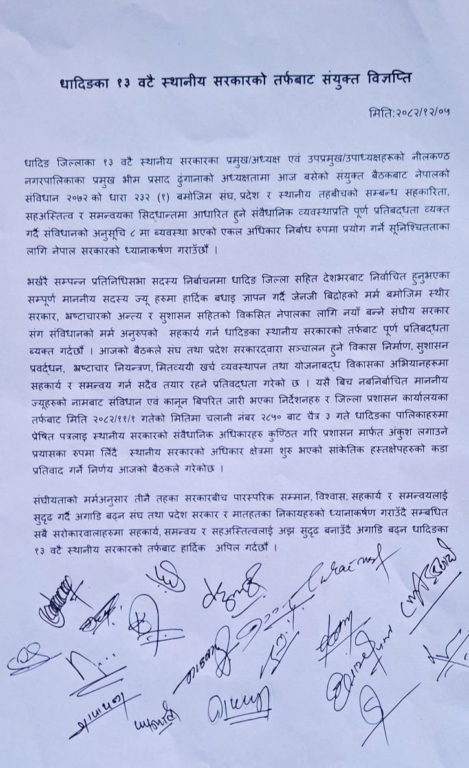 धादिङका १३ वटै स्थानीय सरकारको तर्फबाट संयुक्त विज्ञप्ति
मिति:२०८२/१२/०५
धादिङ जिल्लाका १३ वटै स्थानीय सरकारका प्रमुख/अध्यक्ष एवं उपप्रमुख/उपाध्यक्षहरूको नीलकण्ठ
नगरपालिकाका प्रमुख भीम प्रसाद ढुंगानाको अध्यक्षतामा आज बसेको संयुक्त बैठकबाट नेपालको
संविधान २०७२ को धारा २३२ (१) बमोजिम संघ, प्रदेश र स्थानीय तहबीचको सम्बन्ध सहकारिता,
सहअस्तित्व र समन्वयका सिद्धान्तमा आधारित हुने संवैधानिक व्यवस्थाप्रति पूर्ण प्रतिबद्धता व्यक्त
गर्दै संविधानको अनुसूचि ८ मा ब्यवस्था भएको एकल अधिकार निर्बाध रुपमा प्रयोग गर्ने सूनिश्चितताका
लागि नेपाल सरकारको ध्यानाकर्षण गराउँछौं ।
भर्खरै सम्पन्न प्रतिनिधिसभा सदस्य निर्बाचनमा धादिङ जिल्ला सहित देशभरबाट निर्वाचित हुनुभएका
सम्पूर्ण माननीय सदस्य ज्यू हरुमा हार्दिक बधाइ ज्ञापन गर्दै जेनजी बिद्रोहको मर्म बमोजिम स्थीर
सरकार, भ्रष्टाचारको अन्त्य र सुशासन सहितको विकसित नेपालका लागि नयाँ बन्ने संघीय सरकार
संग संविधानको मर्म अनुरुपको सहकार्य गर्न धादिङका स्थानीय सरकारको तर्फबाट पूर्ण प्रतिबद्धता
ब्यक्त गर्दछौं । आजको बैठकले संघ तथा प्रदेश सरकारद्वारा सञ्चालन हुने विकास निर्माण, सुशासन
प्रवर्द्धन, भ्रष्टाचार नियन्त्रण, मितव्ययी खर्च व्यवस्थापन तथा योजनाबद्ध विकासका अभियानहरूमा
सहकार्य र समन्वय गर्न सदैव तयार रहने प्रतिवद्धता गरेको छ । यसै बिच नबनिर्वाचित माननीय
ज्यूहरुको नामबाट संविधान एवं कानून बिपरित जारी भएका निर्देशनहरु र जिल्ला प्रशासन कार्यालयका
तर्फबाट मिति २०८२/११/१ गतेको मितिमा चलानी नंबर २८५० बाट चैत्र ३ गते धादिङका पालिकाहरुमा
प्रेषित पत्रलाइ स्थानीय सरकारको संवैधानिक अधिकारहरु कुण्ठित गरि प्रशासन मार्फत अंकुश लगाउने
प्रयासका रुपमा लिँदै स्थानीय सरकारको अधिकार क्षेत्रमा शुरु भएको सांकेतिक हस्तक्षेपहरुको कडा
प्रतिवाद गर्ने निर्णय आजको बैठकले गरेकोछ ।
संघीयताको मर्मअनुसार तीनै तहका सरकारबीच पारस्परिक सम्मान, विश्वास, सहकार्य र समन्वयलाई
सुदृढ गर्दै अगाडि बढ्न संघ तथा प्रदेश सरकार र मातहतका निकायहरुको ध्यानाकर्षण गराउँदै सम्बन्धित
सबै सरोकारवालाहरुमा सहकार्य, समन्वय र सहअस्तित्वलाई अझ सुदृढ बनाउँदै अगाडि बढ्न धादिङका
१३ वटै स्थानीय सरकारको तर्फबाट हार्दिक अपिल गर्दछौं ।